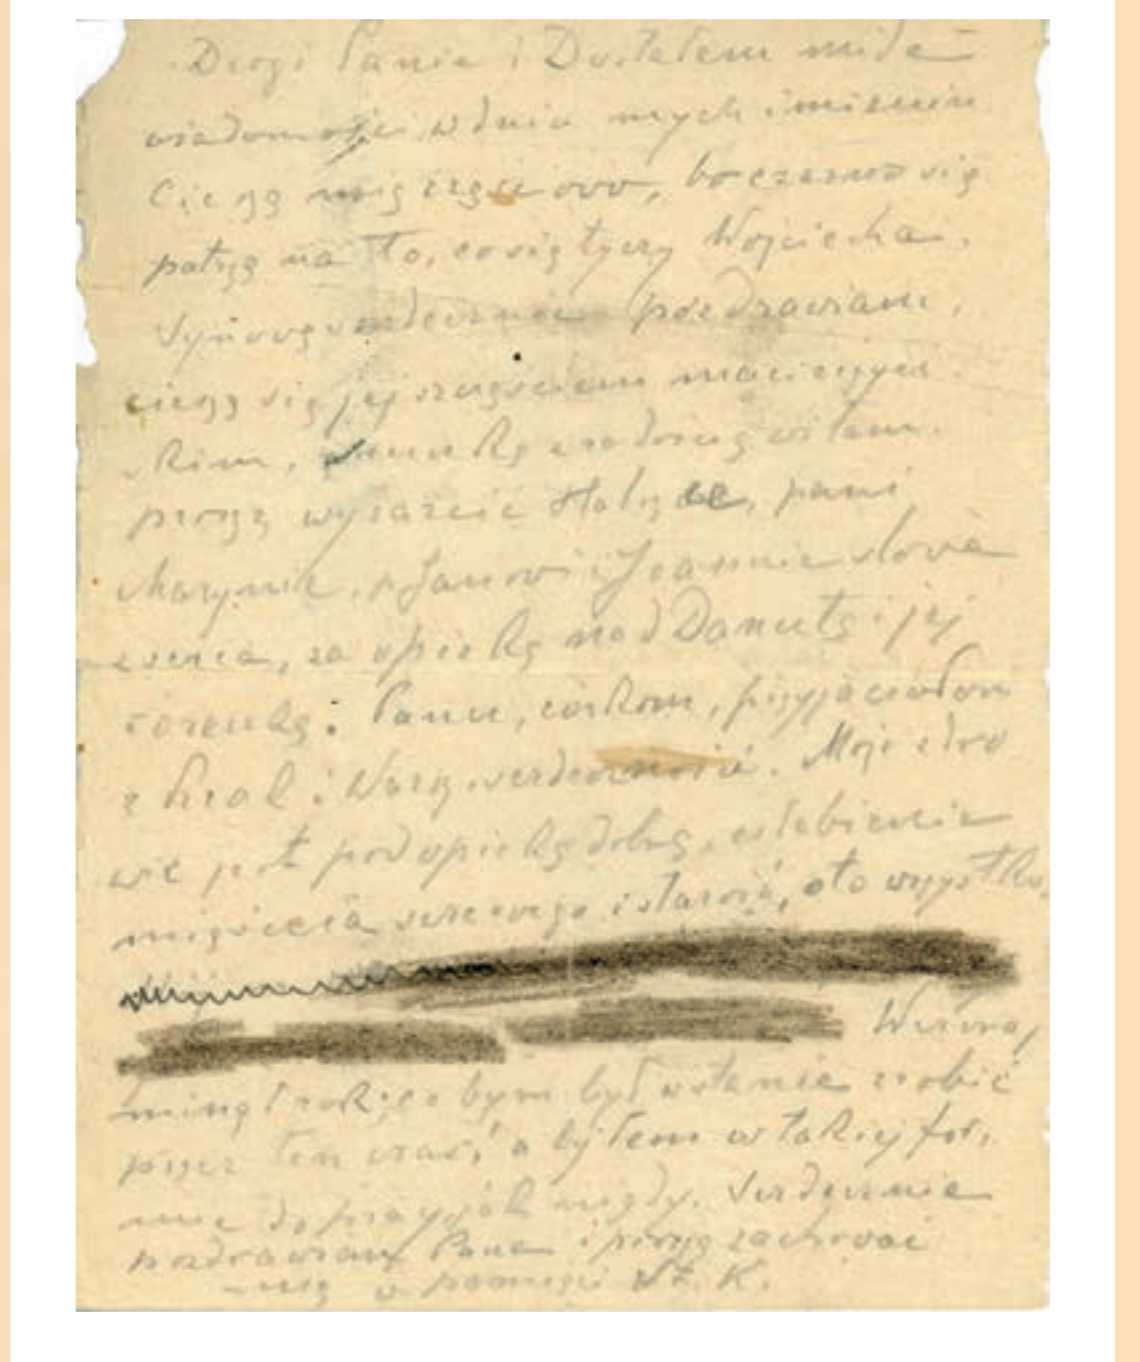 Drogi Panie! Dostałem miłą
wiadomość w dniu mych imienin
Cieszę się częściowo, bo czarno się
patrzę na to, co się tyczy Wojciecha.
Synową serdecznie pozdrawiam,
cieszę się jej szczęściem macierzyń
skim, wnukę z radością witam.
proszę wyrazcie pani
Marynie, p Janowi i Joannie słowa
za opiekę nad Danutą i jej
córeczką; Panu, córkom, przyjaciołom
z Krak i Warsz. serdeczności. Moje zdro
wie jest pod opieką dobrą, osłabienie
mięśnia sercowego i starość, oto wszystko.
Wczoraj
minął rok; co bym był w stanie zrobić
przez ten czas, a byłem w takiej for,
mie do pracy jak nigdy. Serdecznie
pozdrawiam Pana i proszę zachować
mię w pamięci St. K.